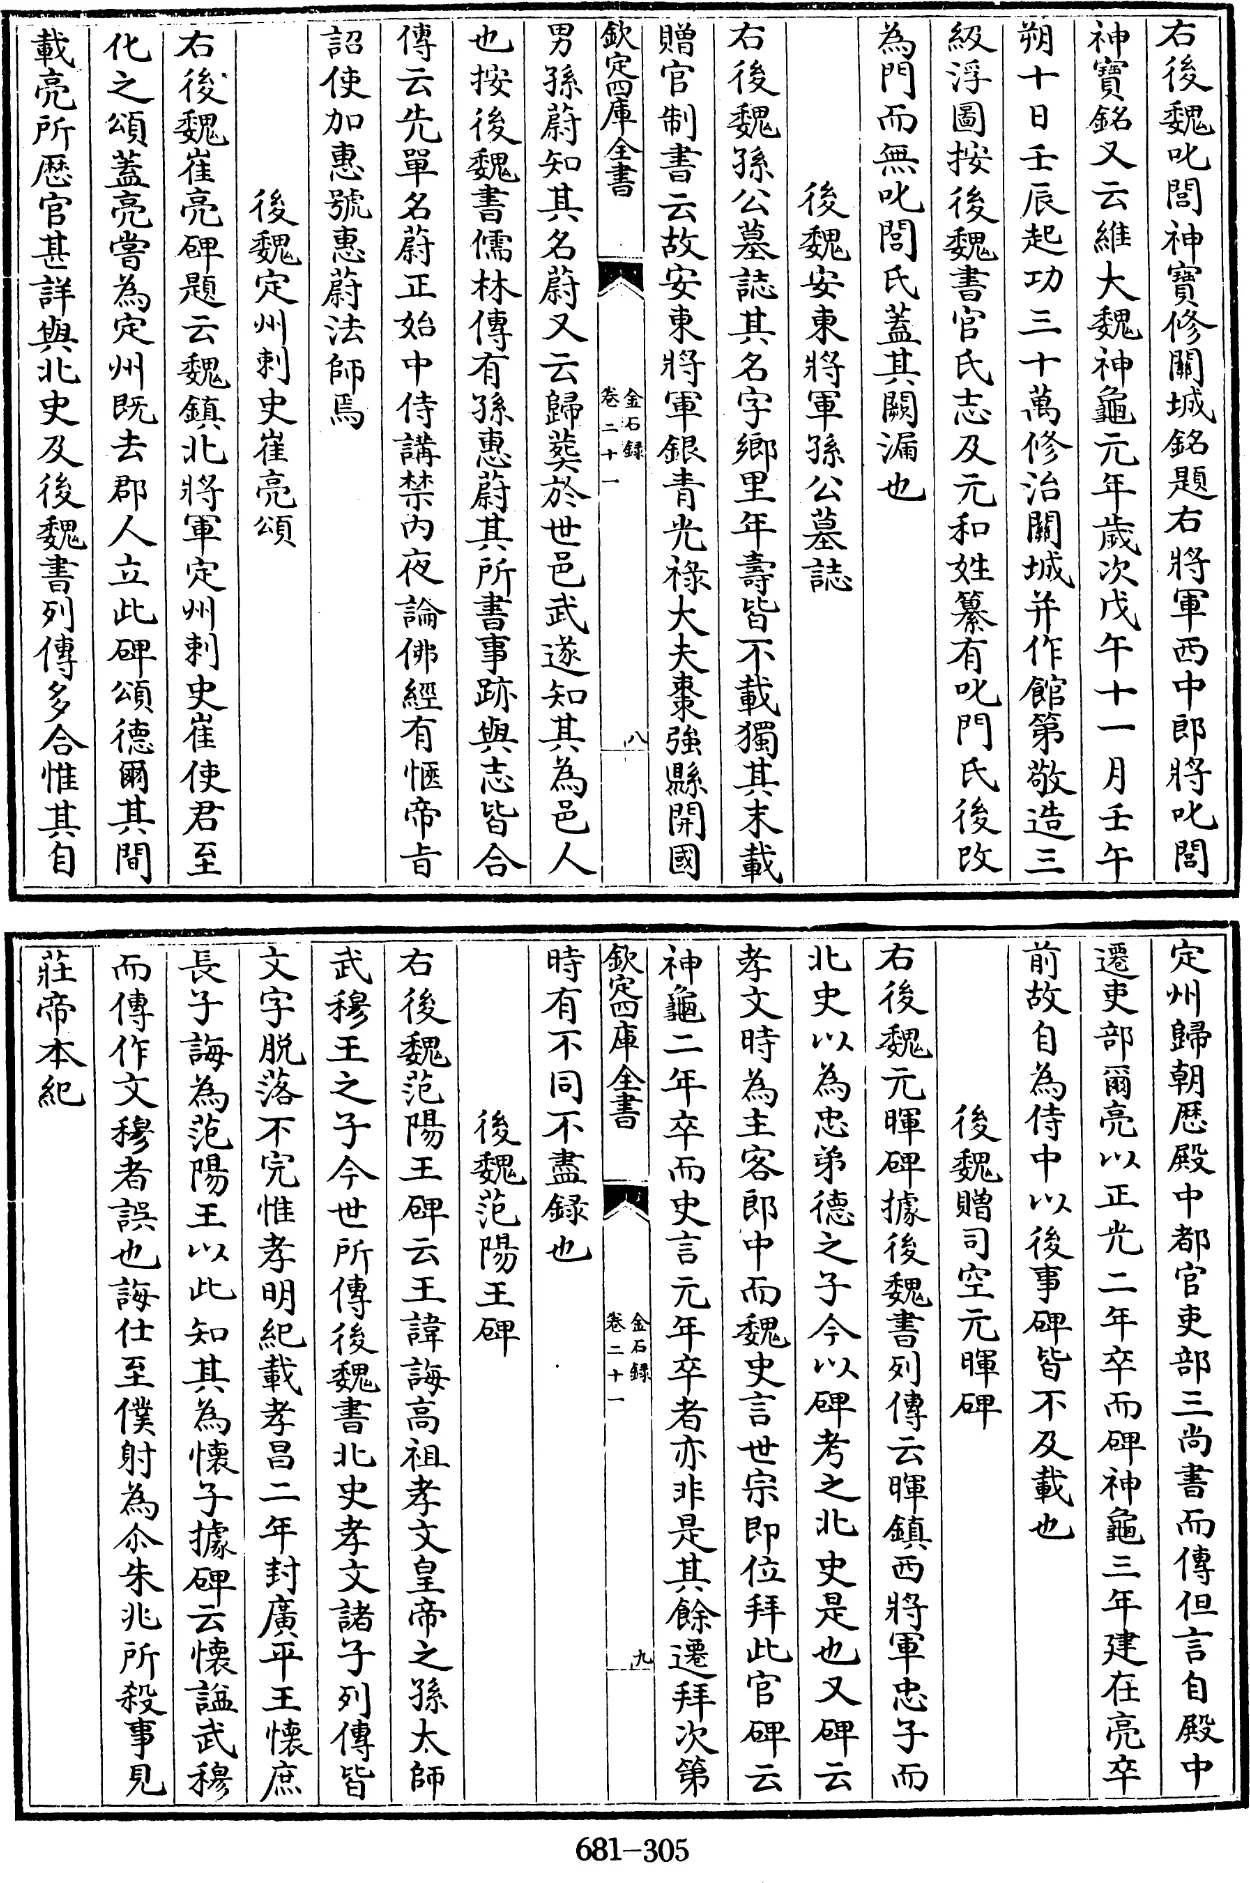 右後魏叱閭神寶修關城銘題右將軍西中郎將叱閭
神寶銘又云維大魏神龜元年歲次戊午十一月壬午
朔十日壬辰起功三十萬修治關城并作館第敬造三
級浮圖按後魏書官氏志及元和姓纂有叱門氏後改
為門而無叱閭氏蓋其闕漏也
後魏安東將軍孫公墓誌
右後魏孫公墓誌其名字鄉里年壽皆不載獨其末載
贈官制書云故安東將軍銀青光祿大夫棗強縣開國
欽定四庫全書
金石録
卷二十一
八
男孫蔚知其名蔚又云歸葬於世邑武遂知其為邑人
也按後魏書儒林傳有孫惠蔚其所書事跡與志皆合
傳云先單名蔚正始中侍講禁内夜論佛經有愜帝㫖
詔使加惠號惠蔚法師焉
後魏定州刺史崔亮頌
右後魏崔亮碑題云魏鎮北將軍定州刺史崔使君至
化之頌蓋亮嘗為定州既去郡人立此碑頌德爾其間
載亮所歷官甚詳與北史及後魏書列傳多合惟其自
定州歸朝歷殿中都官吏部三尚書而傳但言自殿中
遷吏部爾亮以正光二年卒而碑神龜三年建在亮卒
前故自為侍中以後事碑皆不及載也
後魏贈司空元暉碑
右後魏元暉碑據後魏書列傳云暉鎮西將軍忠子而
北史以為忠弟德之子今以碑考之北史是也又碑云
孝文時為主客郎中而魏史言世宗即位拜此官碑云
神龜二年卒而史言元年卒者亦非是其餘遷拜次第
欽定四庫全書
金石録
卷二十一
九
時有不同不盡録也
後魏范陽王碑
右後魏范陽王碑云王諱誨高祖孝文皇帝之孫太師
武穆王之子今世所傳後魏書北史孝文諸子列傳皆
文字脱落不完惟孝明紀載孝昌二年封廣平王懷庶
長子誨為范陽王以此知其為懷子據碑云懷諡武穆
而傳作文穆者誤也誨仕至僕射為尒朱兆所殺事見
莊帝本紀
681-305